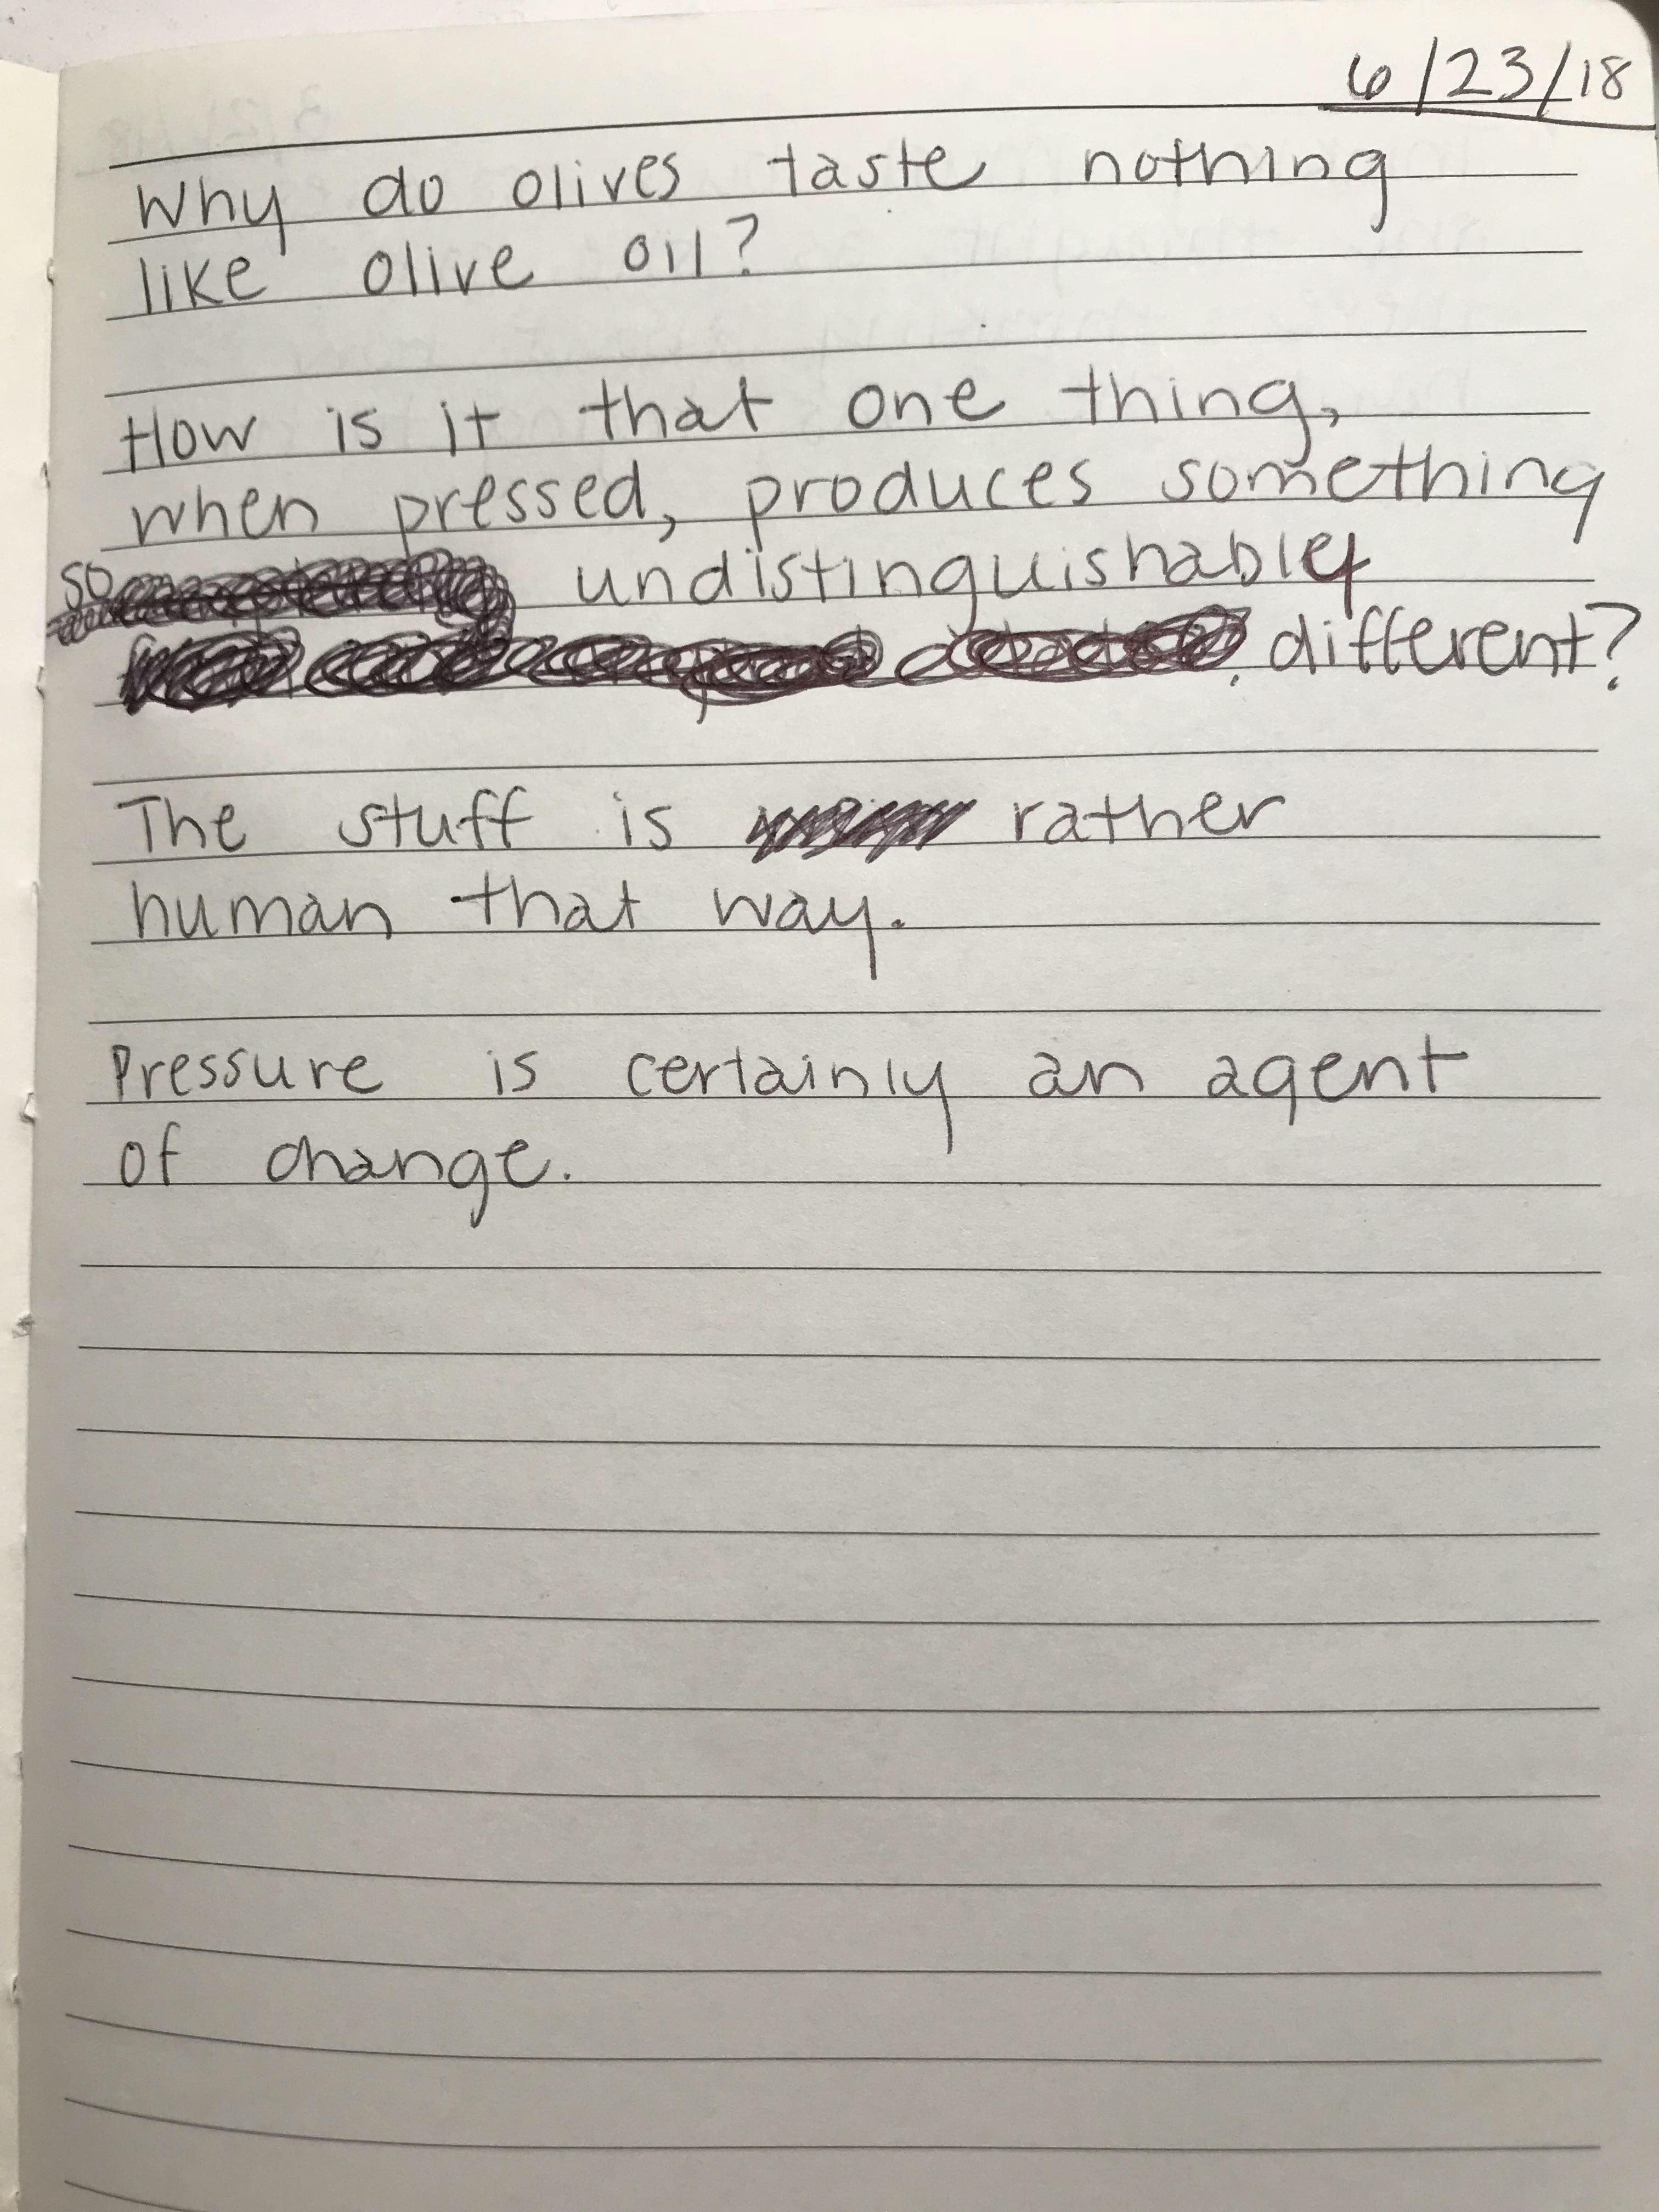 6/23/18
Why do olives taste nothing
like olive oil?
How is it that one thing,
when pressed, produces something
so undistinguishabley
different?
The stuff is rather
human that way.
Pressure is certainly an agent
of change.